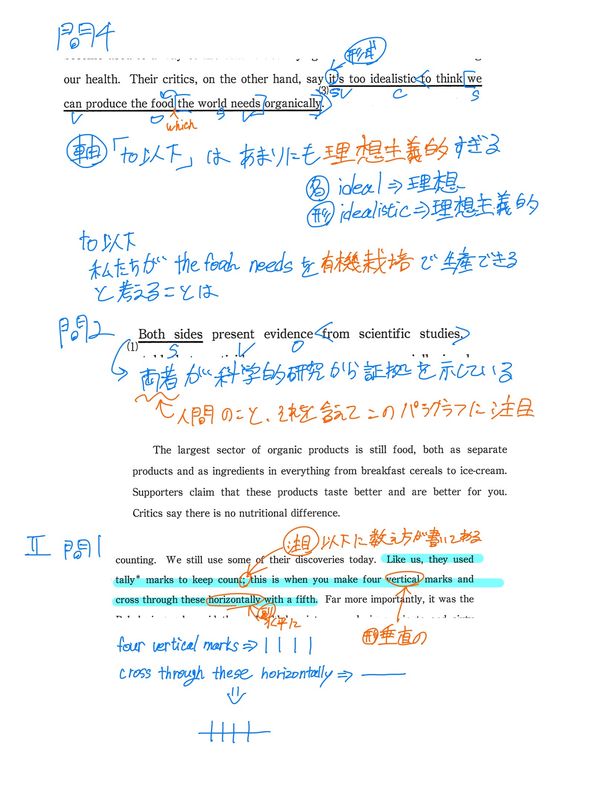 問4
形式
our health. Their critics, on the other hand, say it's too idealistic to think we
(3) SV C S
can produce the food the world needs organically.
V O which S V
軸 「to以下」は あまりにも理想主義的すぎる
名 ideal ⇒ 理想
形 idealistic ⇒ 理想主義的
to以下
私たちが the food needs を有機栽培で生産できる
と考えることは
問2
(1) Both sides present evidence from scientific studies,
S V O
両者が科学的研究から証拠を示している
人間のこと、それを含えてこのパラグラフに注目
The largest sector of organic products is still food, both as separate
products and as ingredients in everything from breakfast cereals to ice-cream.
Supporters claim that these products taste better and are better for you.
Critics say there is no nutritional difference.
Ⅱ 問1
注目 以下に数え方が書いてある
counting. We still use some of their discoveries today. Like us, they used
tally* marks to keep count; this is when you make four vertical marks and
cross through these horizontally with a fifth. Far more importantly, it was the
副 水平に
形 垂直の
four vertical marks ⇒ | | | |
cross through these horizontally ⇒ —